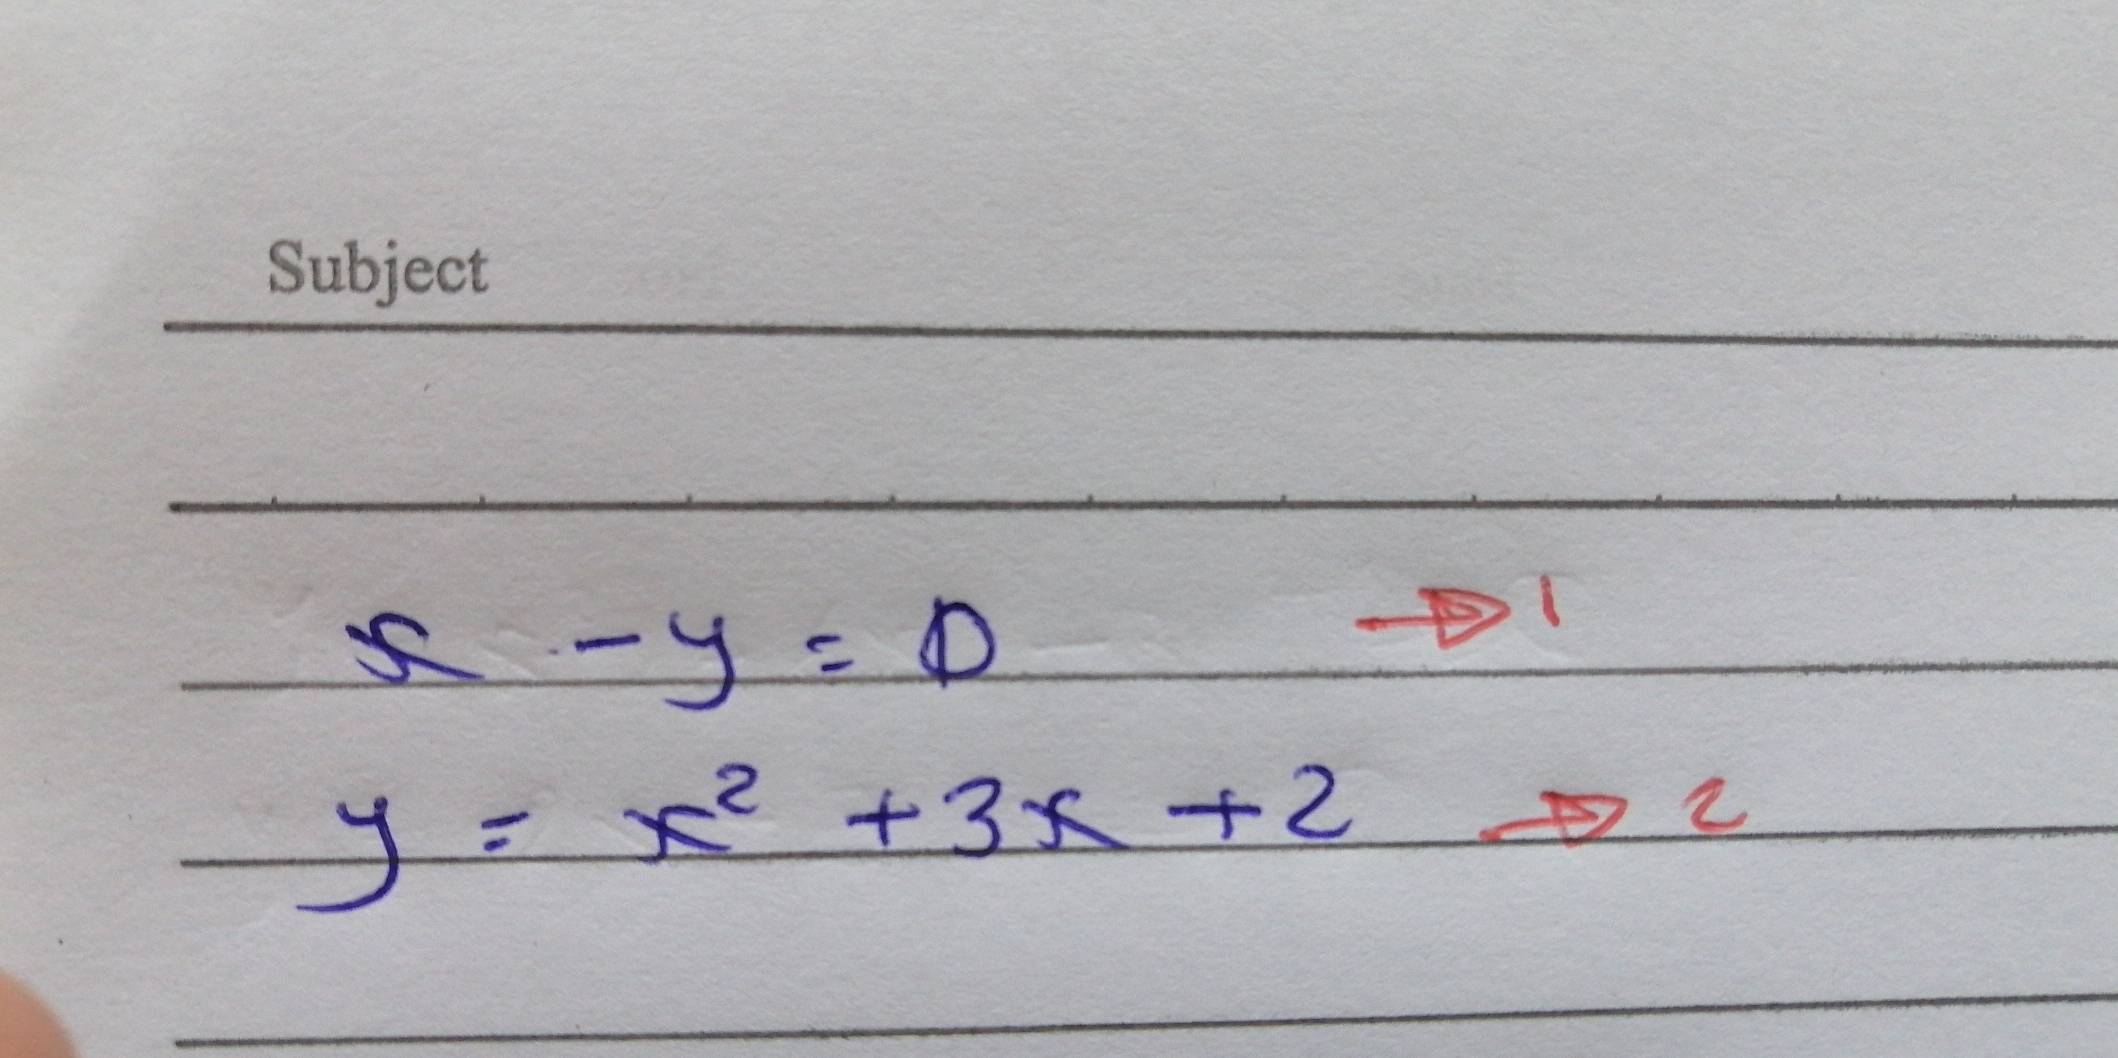 Subject
x - y = 0 → 1
y = x² + 3x + 2 → 2